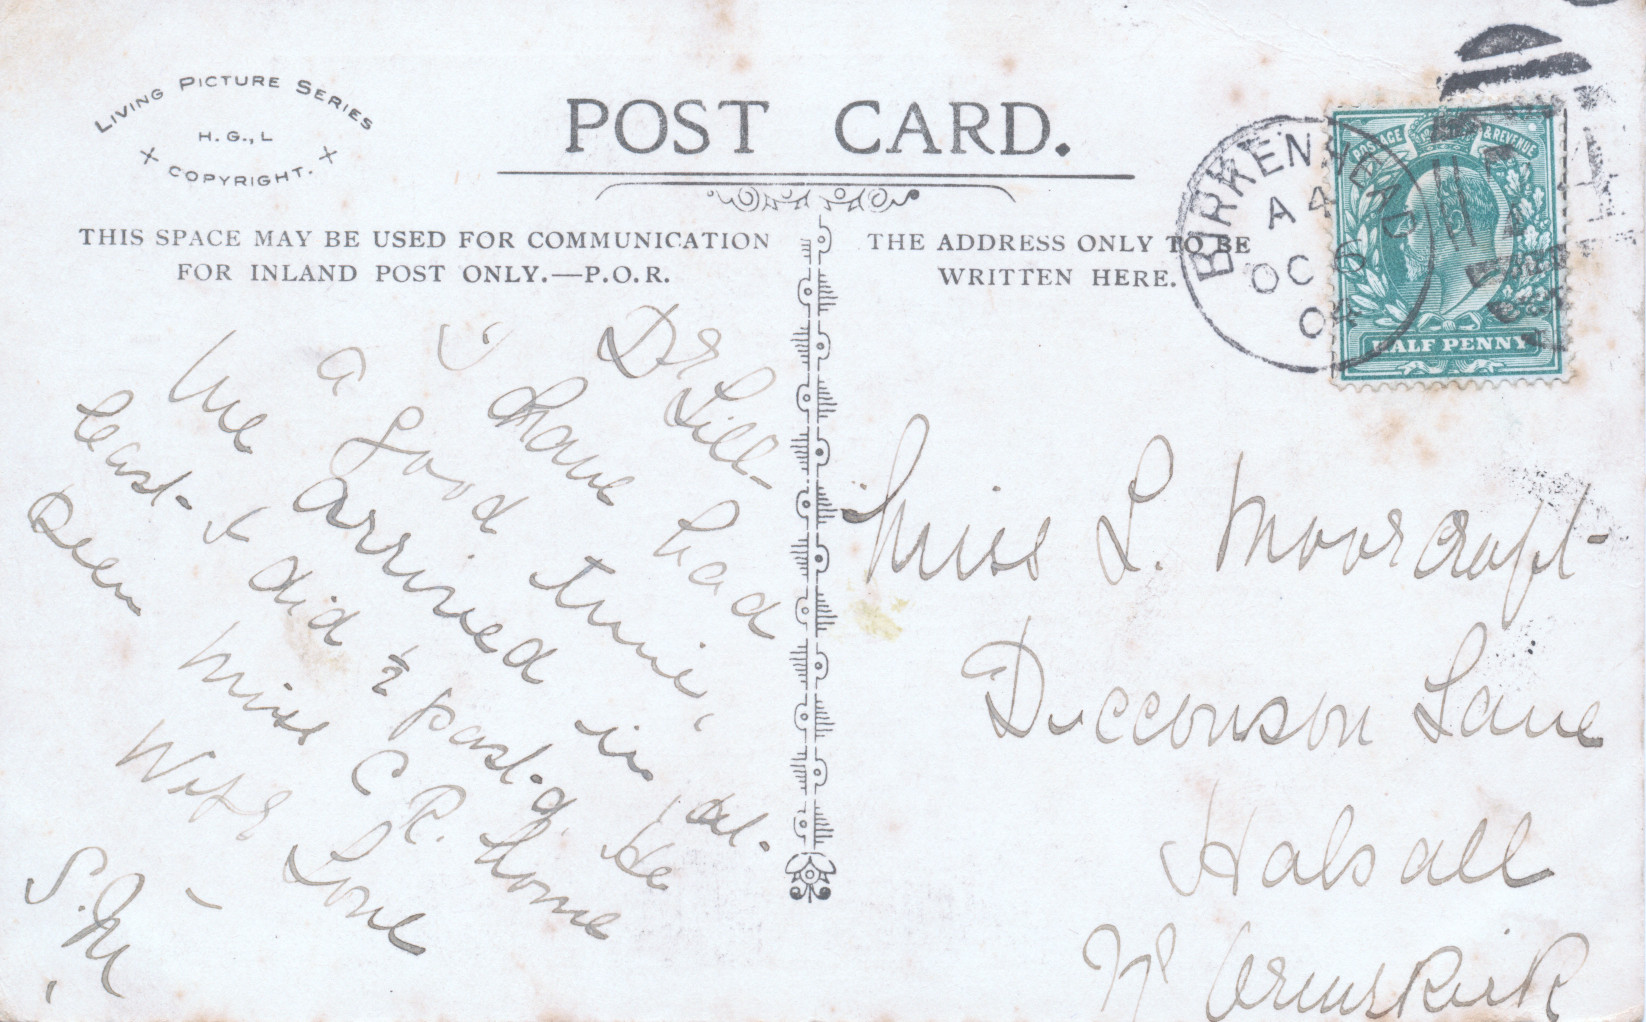 LIVING PICTURE SERIES
H. G., L
COPYRIGHT.
POST CARD.
THIS SPACE MAY BE USED FOR COMMUNICATION
FOR INLAND POST ONLY.—P.O.R.
THE ADDRESS ONLY TO BE
WRITTEN HERE.
BIRKENHEAD
A 4
OC 6
04
POSTAGE & REVENUE
HALF PENNY
Dr Lill-
I have had
a good time,
We arrived in at
least I did ½ past 9. He
seen Miss C R. home
With Love
S. M
Miss L. Moorcroft
Dicconson Lane
Halsall
Nr Ormskirk